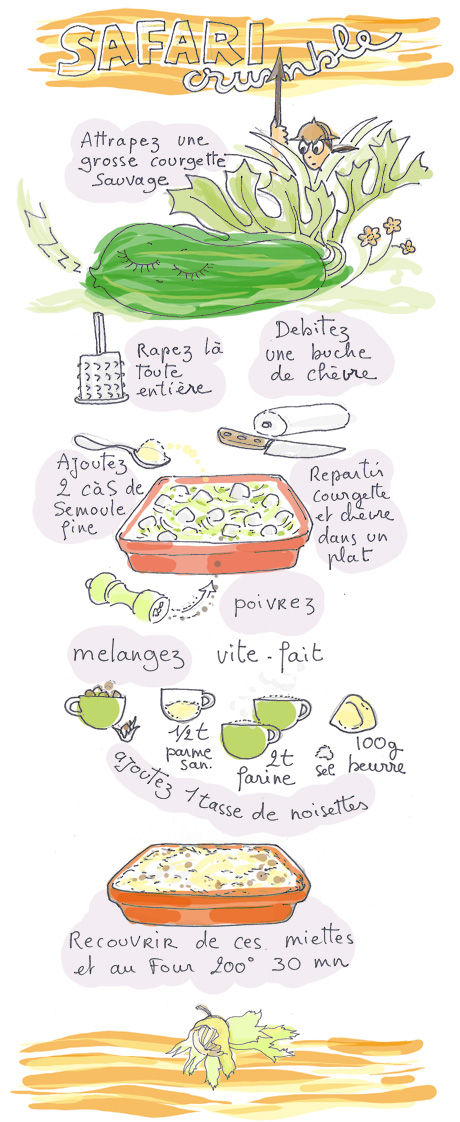 SAFARI
crumble
Attrapez une
grosse courgette
Sauvage
ZZZZZ
Rapez là
toute
entière
Debitez
une buche
de chèvre
Ajoutez
2 càS de
Semoule
fine
Repartir
courgette
et chevre
dans un
plat
poivrez
melangez vite-fait
1/2 t
parme
san.
2t
farine
sel
100g
beurre
ajoutez 1 tasse de noisettes
Recouvrir de ces miettes
et au Four 200° 30 mn